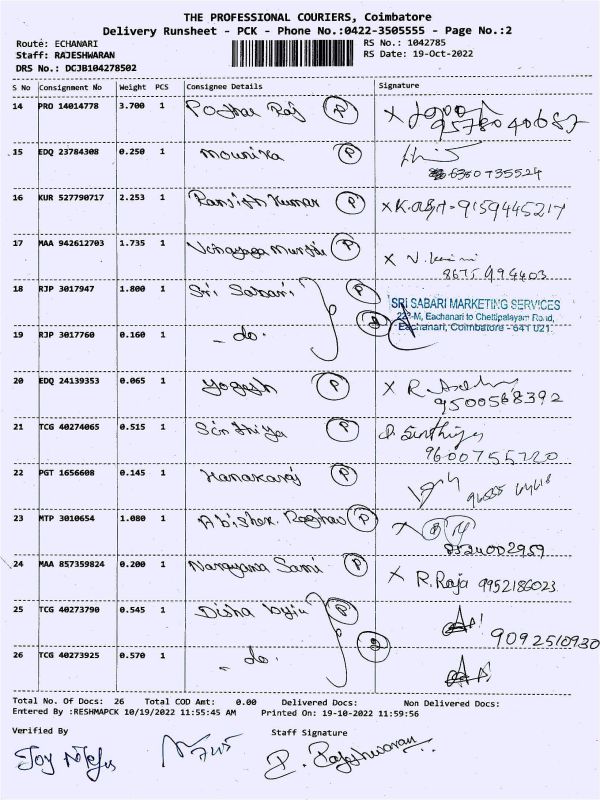 THE PROFESSIONAL COURIERS, Coimbatore
Delivery Runsheet - PCK - Phone No.:0422-3505555 - Page No.:2
Route: ECHANARI
RS No.: 1042785
Staff: RAJESHWARAN
RS Date: 19-Oct-2022
DRS No.: DCJB104278502
S No Consignment No Weight PCS Consignee Details Signature
14 PRO 14014778 3.700 1 P
9578040687
15 EDQ 23784308 0.250 1 Mounika P
6380735524
16 KUR 527790717 2.253 1 Ranjith Kumar P X 9159445217
17 MAA 942612703 1.735 1 P X
8675994403
18 RJP 3017947 1.800 1 Sri Sabari P SRI SABARI MARKETING SERVICES
Eachanari to Chettipalayam Road,
19 RJP 3017760 0.160 1 - do. 2 Eachanari, Coimbatore - 641 021
20 EDQ 24139353 0.065 1 Yogesh P X R.
9500568392
21 TCG 40274065 0.515 1 Sinthiya P P. Sinthiya
9600755720
22 PGT 1656608 0.145 1 Kanakaraj P
23 MTP 3010654 1.080 1 Abishek. Raghav P X
8524002959
24 MAA 857359824 0.200 1 Narayana Sami P X R. Raja 9952186023
25 TCG 40273790 0.545 1 Disha P
2 9092510930
26 TCG 40273925 0.570 1 - do.
Total No. Of Docs: 26 Total COD Amt: 0.00 Delivered Docs: Non Delivered Docs:
Entered By :RESHMAPCK 10/19/2022 11:55:45 AM Printed On: 19-10-2022 11:59:56
Verified By Staff Signature
P. Rajeshwaran